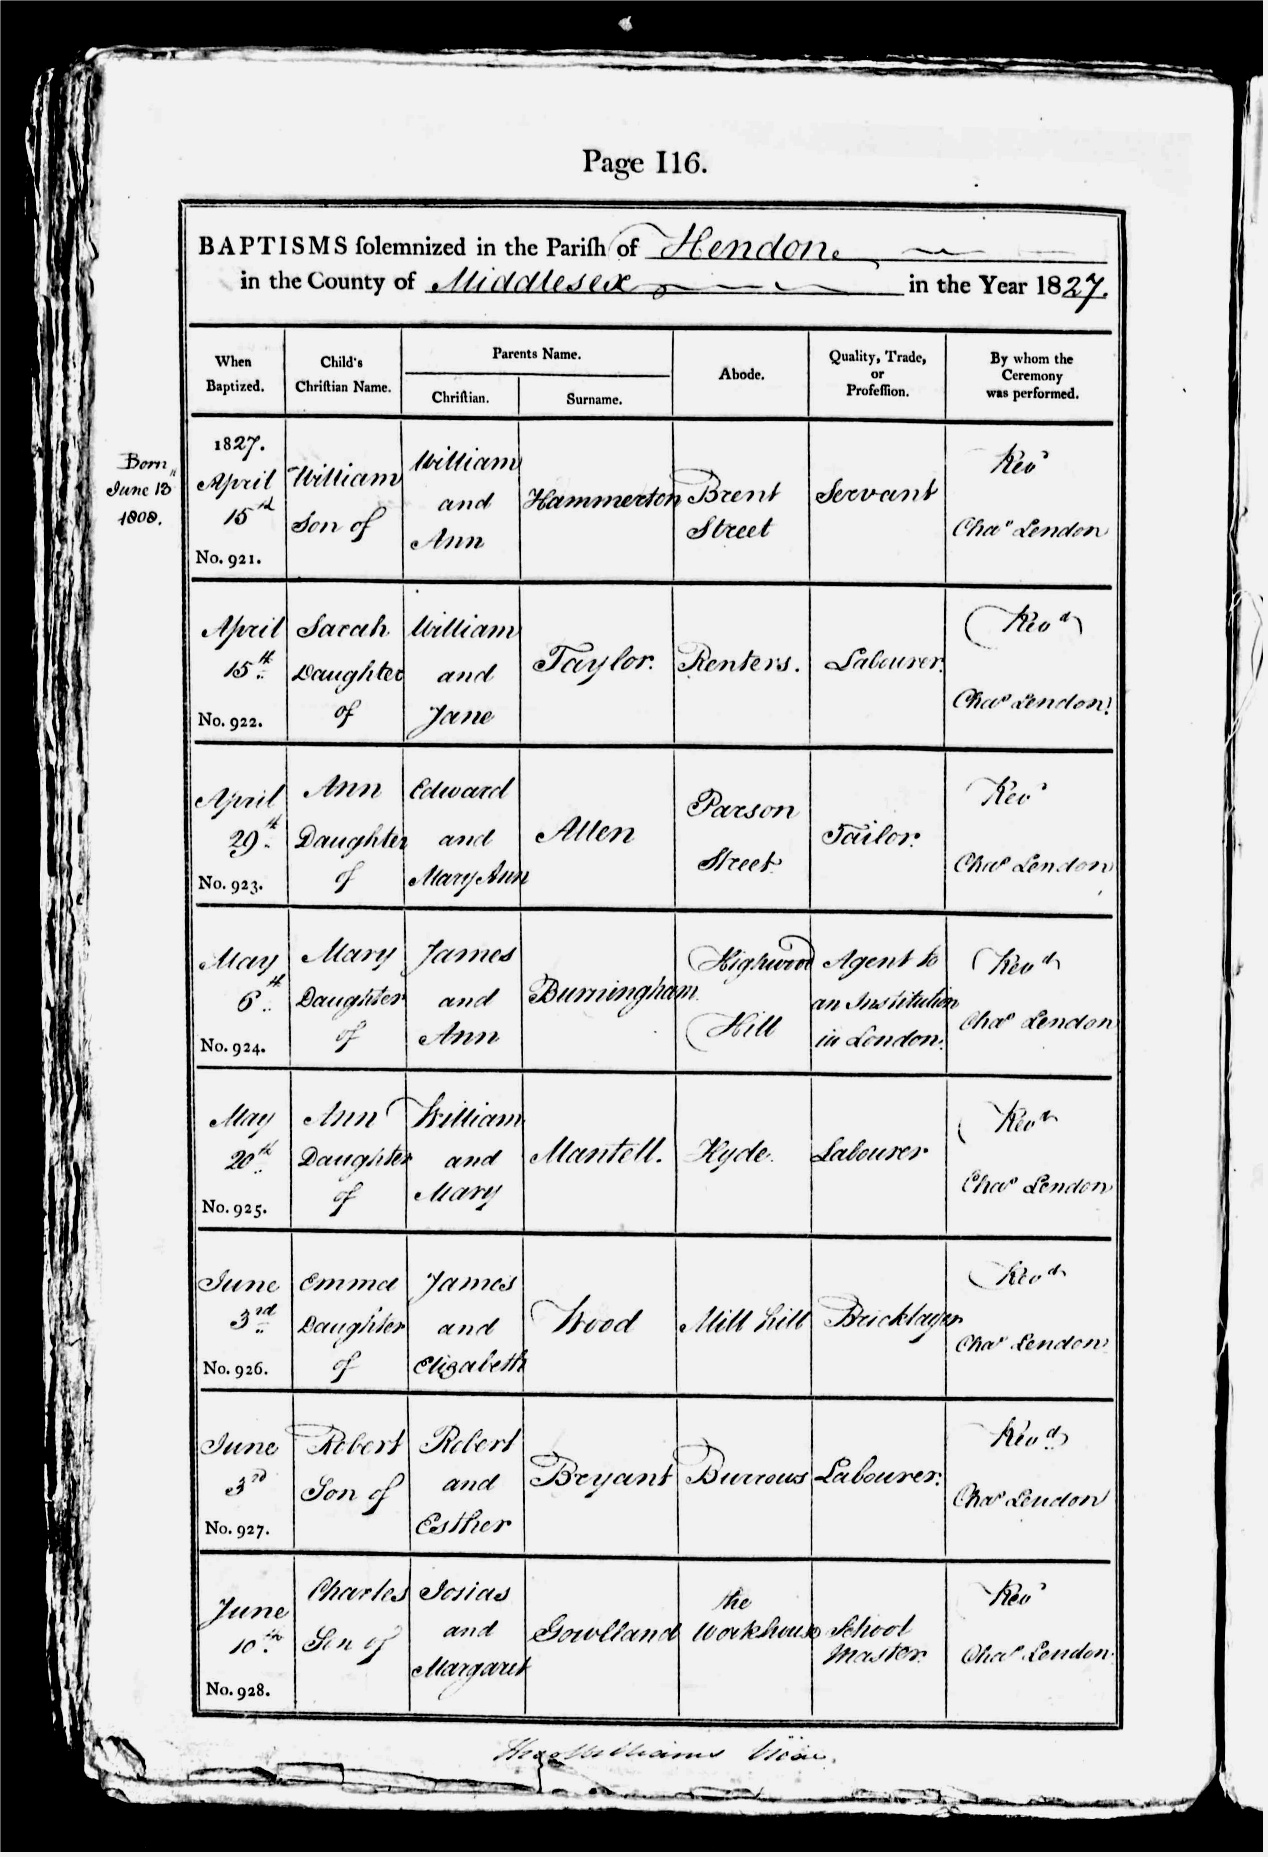 Page 116.
BAPTISMS solemnized in the Parish of Hendon
in the County of Middlesex in the Year 1827.
When Baptized.
Child's Christian Name.
Parents Name.
Christian.
Surname.
Abode.
Quality, Trade, or Profession.
By whom the Ceremony was performed.
Born
June 13
1808.
1827.
April
15th
No. 921.
William
Son of
William
and
Ann
Hammerton
Brent
Street
Servant
Revd
Chas Lendon
April
15th
No. 922.
Sarah
Daughter
of
William
and
Jane
Taylor.
Renters.
Labourer.
Revd
Chas Lendon
April
29th
No. 923.
Ann
Daughter
of
Edward
and
Mary Ann
Allen
Parson
Street
Tailor.
Revd
Chas Lendon
May
6th
No. 924.
Mary
Daughter
of
James
and
Ann
Burningham
Highwood
Hill
Agent to
an Institution
in London.
Revd
Chas Lendon
May
20th
No. 925.
Ann
Daughter
of
William
and
Mary
Mantell.
Hyde.
Labourer
Revd
Chas Lendon
June
3rd
No. 926.
Emma
Daughter
of
James
and
Elizabeth
Wood
Mill hill
Bricklayer
Revd
Chas Lendon
June
3rd
No. 927.
Robert
Son of
Robert
and
Esther
Bryant
Burrows
Labourer.
Revd
Chas Lendon
June
10th
No. 928.
Charles
Son of
Josias
and
Margaret
Gowlland
the
Workhouse
School
Master.
Revd
Chas Lendon
Williams